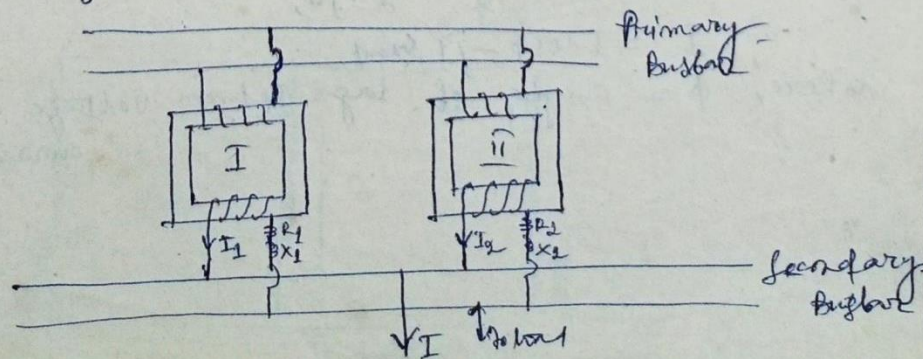 Primary
Busbar
I
II
I1
R1
X1
I2
R2
X2
Secondary
Busbar
I
To load